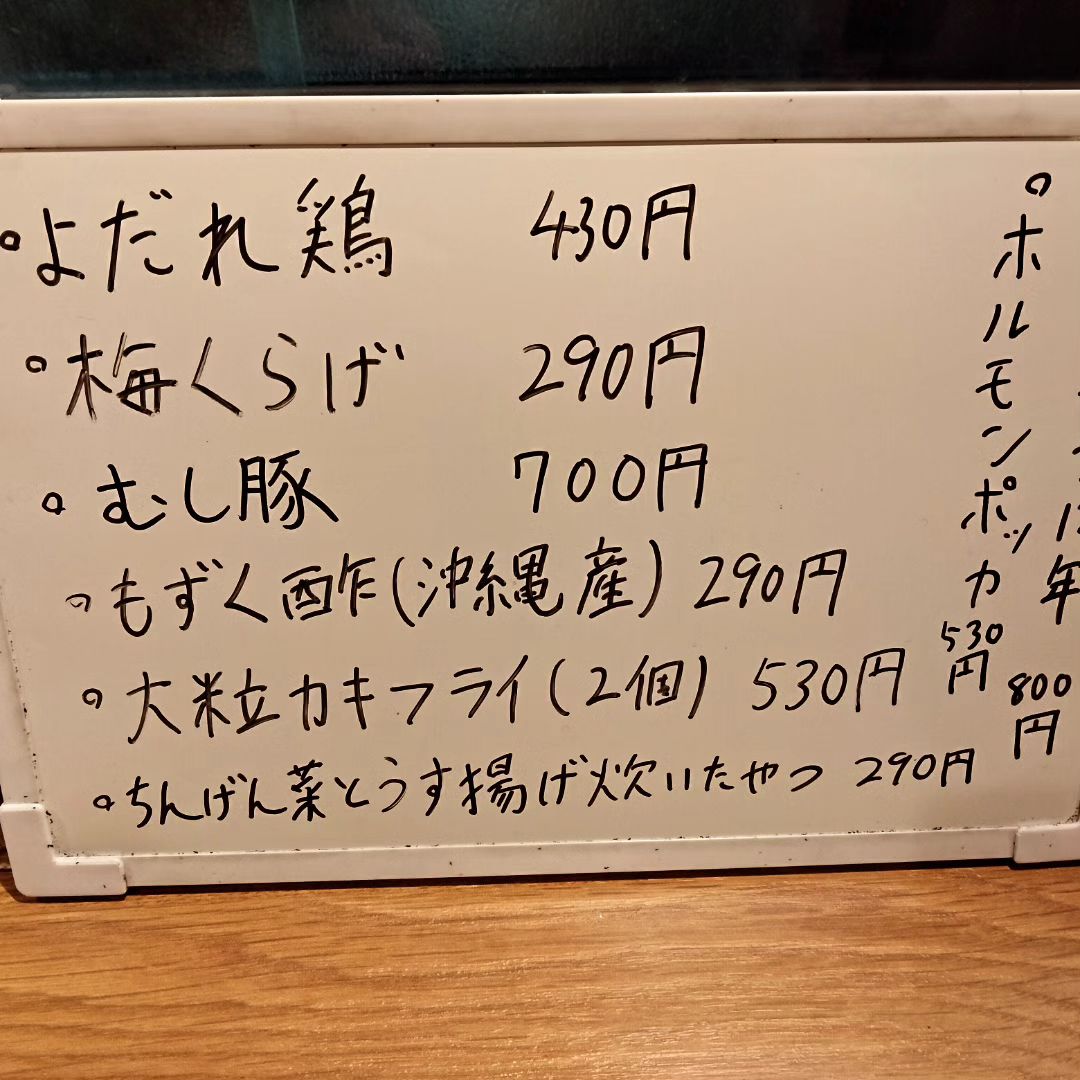 。よだれ鶏 430円
。梅くらげ 290円
。むし豚 700円
。もずく酢(沖縄産) 290円
。大粒カキフライ(2個) 530円
。ちんげん菜とうす揚げ炊いたやつ 290円
。ホルモンポッカ 530円
年 800円